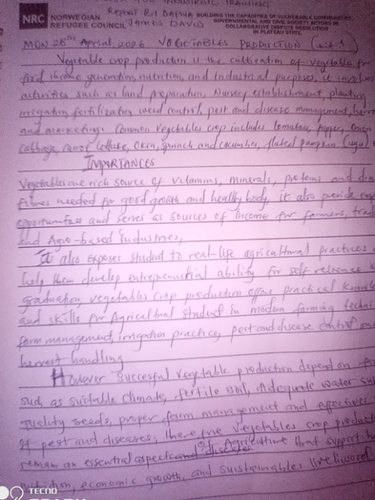 NRC NORWEGIAN REFUGEE COUNCIL
BUILDING THE CAPACITIES OF VULNERABLE COMMUNITIES,
GOVERNMENTAL, AND CIVIL SOCIETY ACTORS IN
COLLABORATIVE DISPUTE RESOLUTION
IN PLATEAU STATE
TRAINING
James David
MON 28th April 2026 VEGETABLES PRODUCTION
Vegetable crop production is the cultivation of vegetable for
food income generation, nutrition, and industrial purposes, it involves
activities such as land preparation, Nursery establishment, planting
irrigation, fertilization, weed control, pest and disease management, harvest
and marketing. Common Vegetables crop includes tomatoes, pepper, Onion
Cabbage, Carrot, lettuce, Okra, Spinach and cucumber, fluted pumpkin (ugu)
IMPORTANCES
Vegetables are rich source of vitamins, minerals, proteins and
fibres needed for good growth and healthy body, it also provide
opportunities and serves as sources of income for farmers,
and Agro-based Industries,
It also exposes student to real-life agricultural practices
help them develop entrepreneurial ability for self-reliance
graduation, vegetables crop production offers practical
and skills for Agricultural student in modern farming
farm management, irrigation practices, pest and disease control
harvest handling
However Successful vegetable production depend on
such as suitable climate, fertile soil, Adequate water
quality seeds, proper farm management and effective
of pest and diseases, therefore Vegetables crop
remain an essential aspect of Agriculture that support
economic growth, and sustainable
TECNO